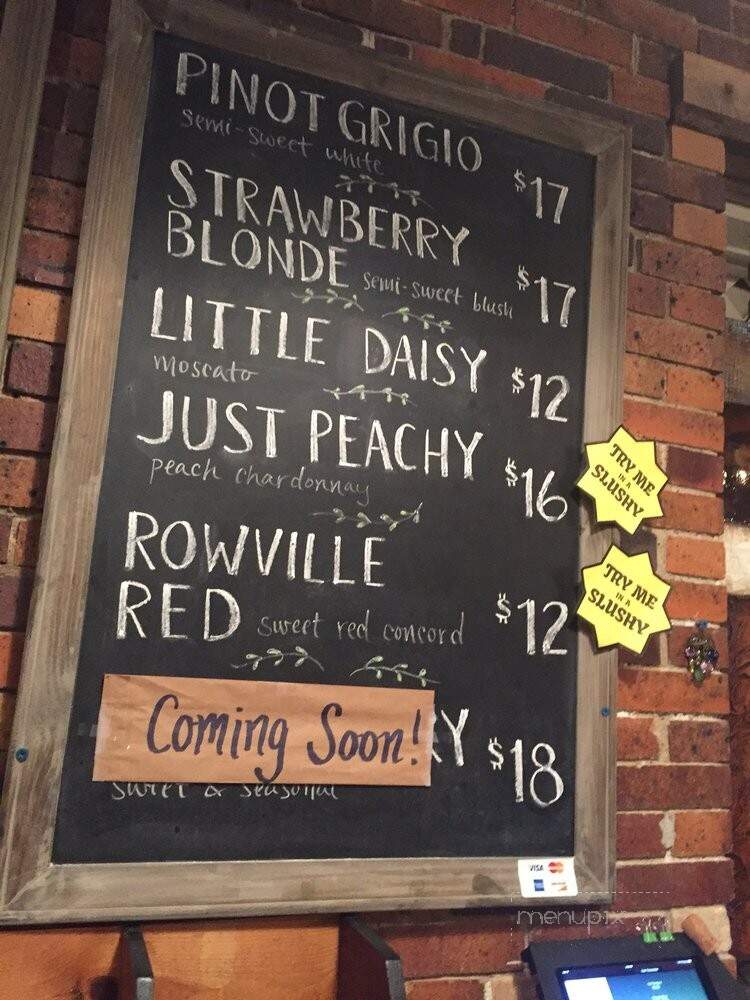 PINOT GRIGIO $17
semi-sweet white
STRAWBERRY
BLONDE semi-sweet blush $17
LITTLE DAISY $12
moscato
JUST PEACHY $16
peach chardonnay
TRY ME
IN A
SLUSHY
ROWVILLE
RED sweet red concord $12
TRY ME
IN A
SLUSHY
Coming Soon! RY $18
sweet & seasonal
VISA
menupix